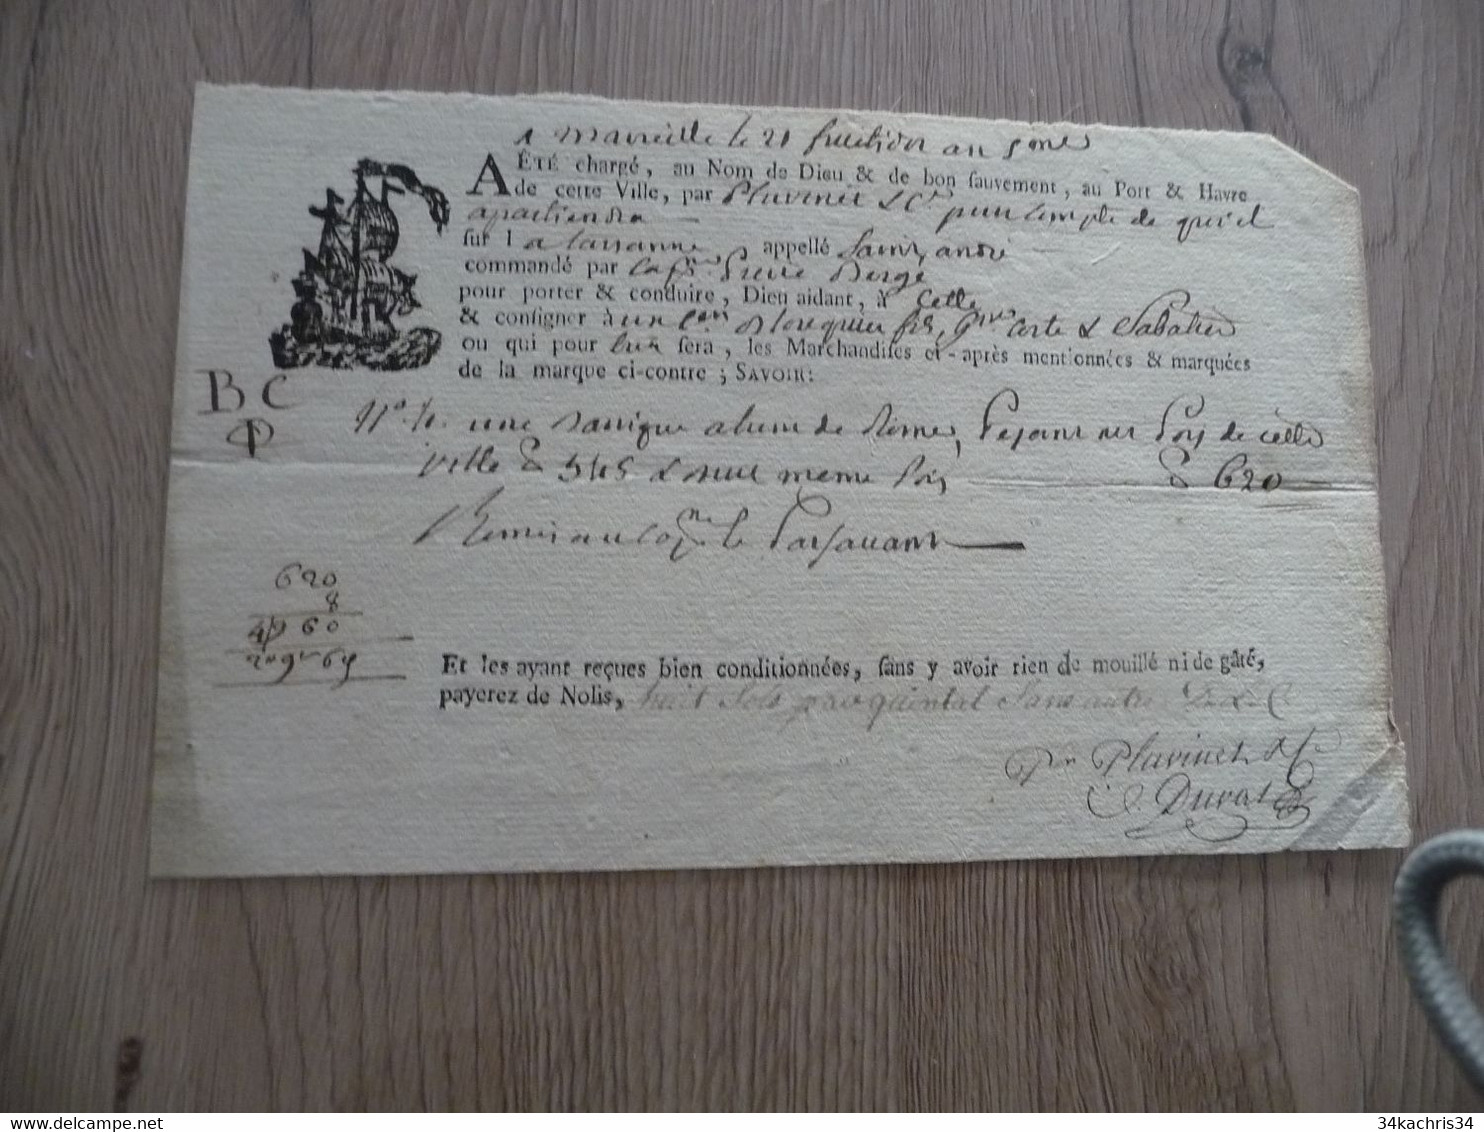 A Marseille le 21 fructidor an 5me
A ÉTÉ chargé, au Nom de Dieu & de bon sauvement, au Port & Havre
de cette Ville, par Pluvinet & Ce pour compte de qu'il
apartiendra
sur l a tartanne appellé Saint andré
commandé par Capne Pierre Berge
pour porter & conduire, Dieu aidant, à Cette
& consigner à un Cen Cte & Sabatier
ou qui pour lui sera, les Marchandises ci-après mentionnées & marquées
de la marque ci-contre; SAVOIR:
B C
P
une barrique alun de Rome, Pesant au Poid de cette
ville 545 & sur meme Poid 620
Remis au Capne le Passavant
620
8
4960
Et les ayant reçues bien conditionnées, sans y avoir rien de mouillé ni de gâté,
payerez de Nolis, huit sols par quintal sans autre
Pr Pluvinet & Ce
Duval
34kachris34
delcampe.net 34kachris34